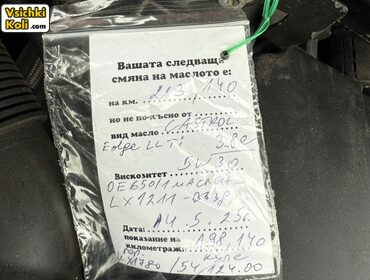 Vsichki
Koli.com
Вашата следваща
смяна на маслото е:
на км. 213,140
но не по-късно от
вид масло CASTROL
Edge LL TI
Вискозитет 5W30
OE650/1 маслен
LX1211 - възд
Дата: 14.5.25г.
показание на
километраж: 198,140
LX1780 / 54.124.00